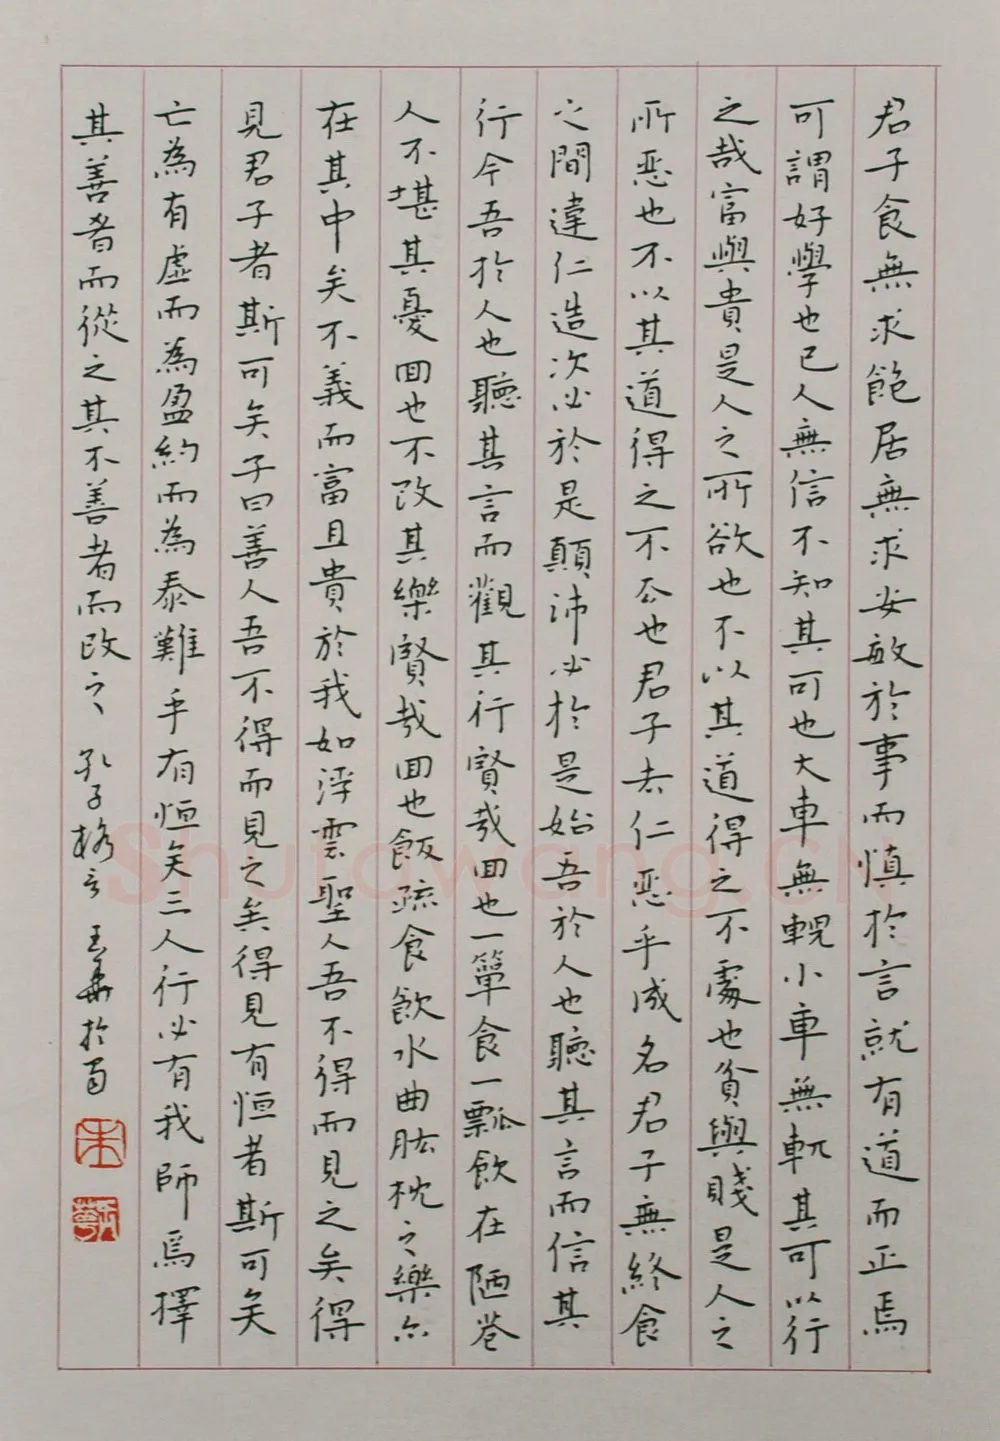 君子食無求飽居無求安敏於事而慎於言就有道而正焉
可謂好學也已人無信不知其可也大車無輗小車無軏其可以行
之哉富與貴是人之所欲也不以其道得之不處也貧與賤是人之
所惡也不以其道得之不去也君子去仁惡乎成名君子無終食
之間違仁造次必於是顛沛必於是始吾於人也聽其言而信其
行今吾於人也聽其言而觀其行賢哉回也一簞食一瓢飲在陋巷
人不堪其憂回也不改其樂賢哉回也飯疏食飲水曲肱枕之樂亦
在其中矣不義而富且貴於我如浮雲聖人吾不得而見之矣得
見君子者斯可矣子曰善人吾不得而見之矣得見有恒者斯可矣
亡為有虛而為盈約而為泰難乎有恒矣三人行必有我師焉擇
其善者而從之其不善者而改之 孔子格言 於
Shufawang.CN